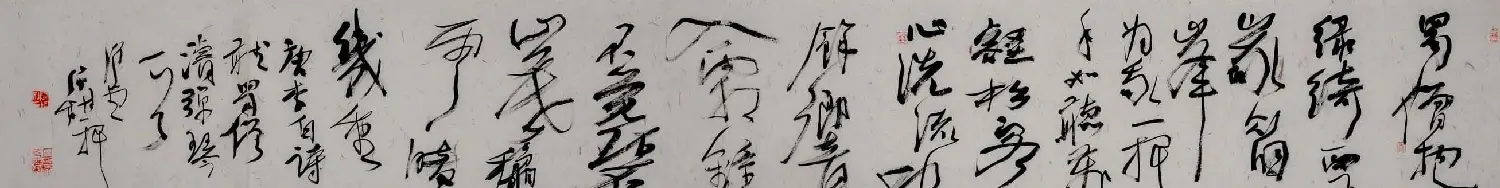 蜀僧抱
绿绮西
峨眉
峰
为我一挥
手如听万
壑松客
心洗流水
餘響
入霜鐘
不覺碧
山暮秋
雲暗
幾重
唐李白詩
聽蜀僧
濬彈琴